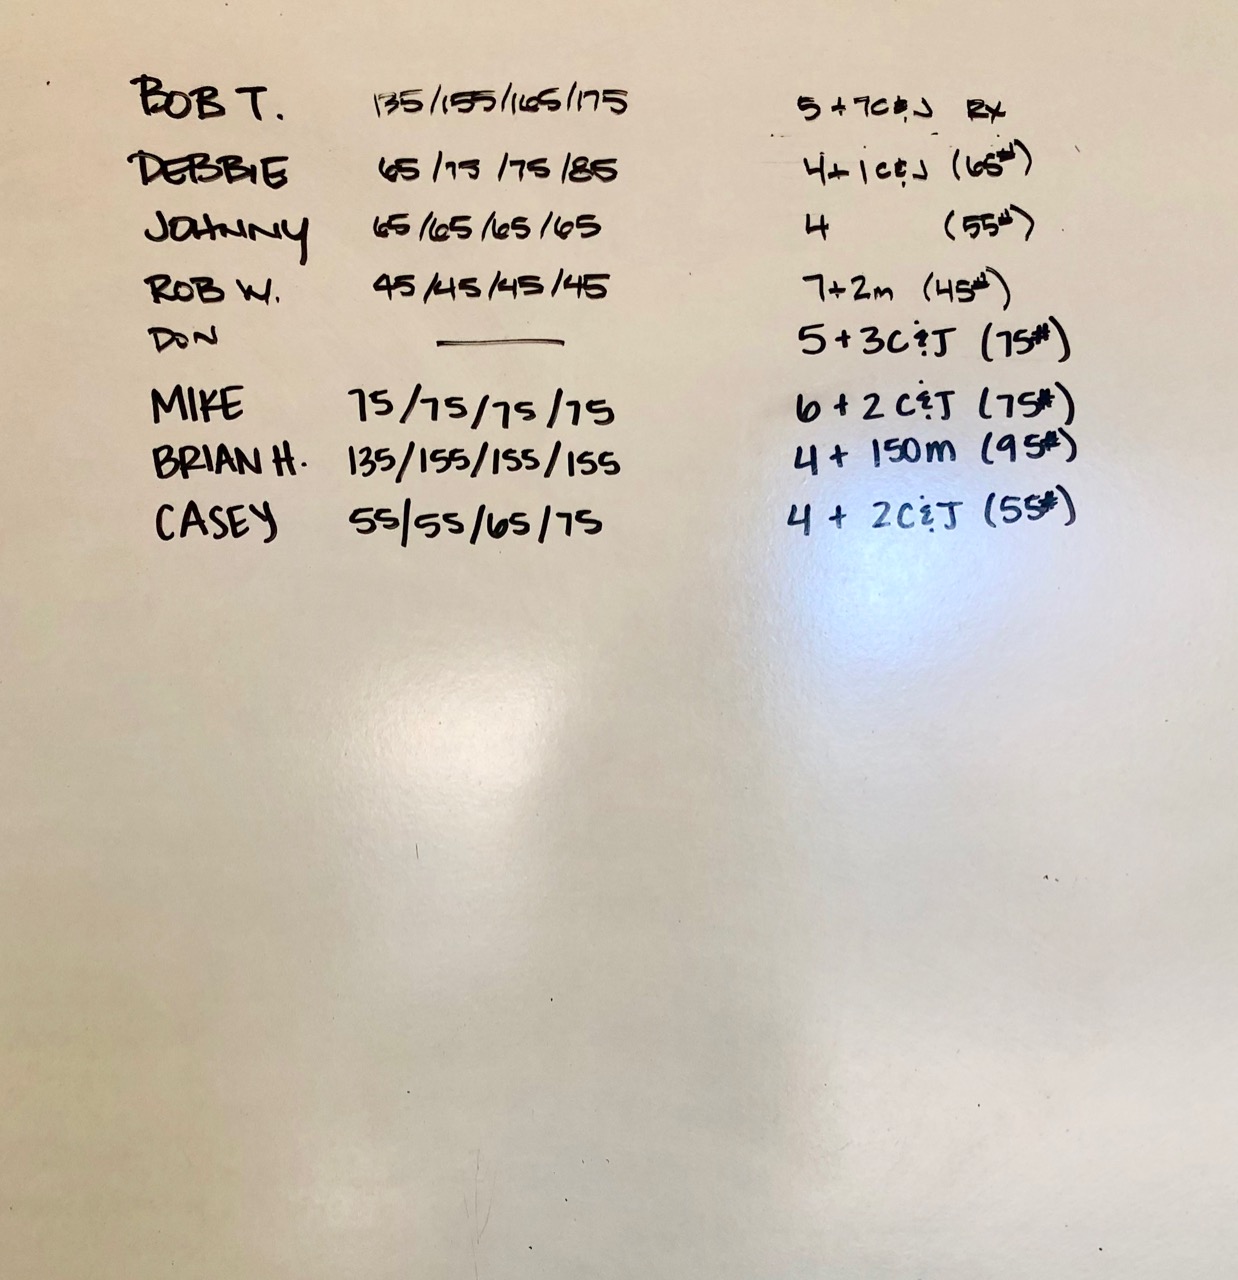 BOB T. 135/155/165/175 5+7C&J RX
DEBBIE 65/75/75/85 4+1C&J (65#)
JOHNNY 65/65/65/65 4 (55#)
ROB W. 45/45/45/45 7+2m (45#)
DON — 5+3C&J (75#)
MIKE 75/75/75/75 6+2C&J (75#)
BRIAN H. 135/155/155/155 4+ 150m (95#)
CASEY 55/55/65/75 4 + 2C&J (55#)